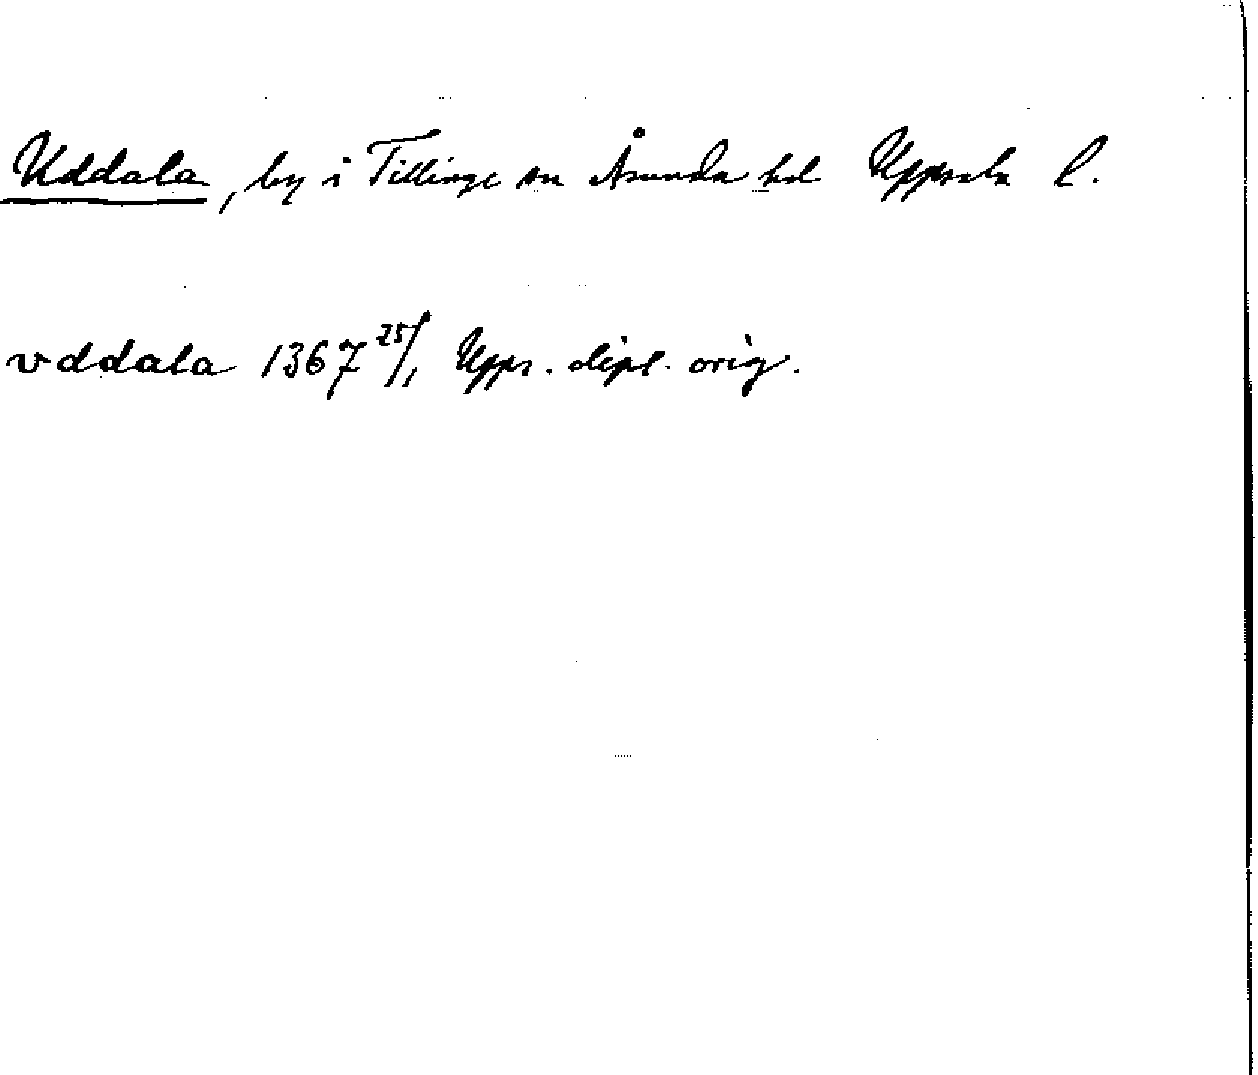 Uddala, by i Tillinge sn Åsunda hd Uppsala l.
vddala 1367 25/1 Upps. dipl. orig.